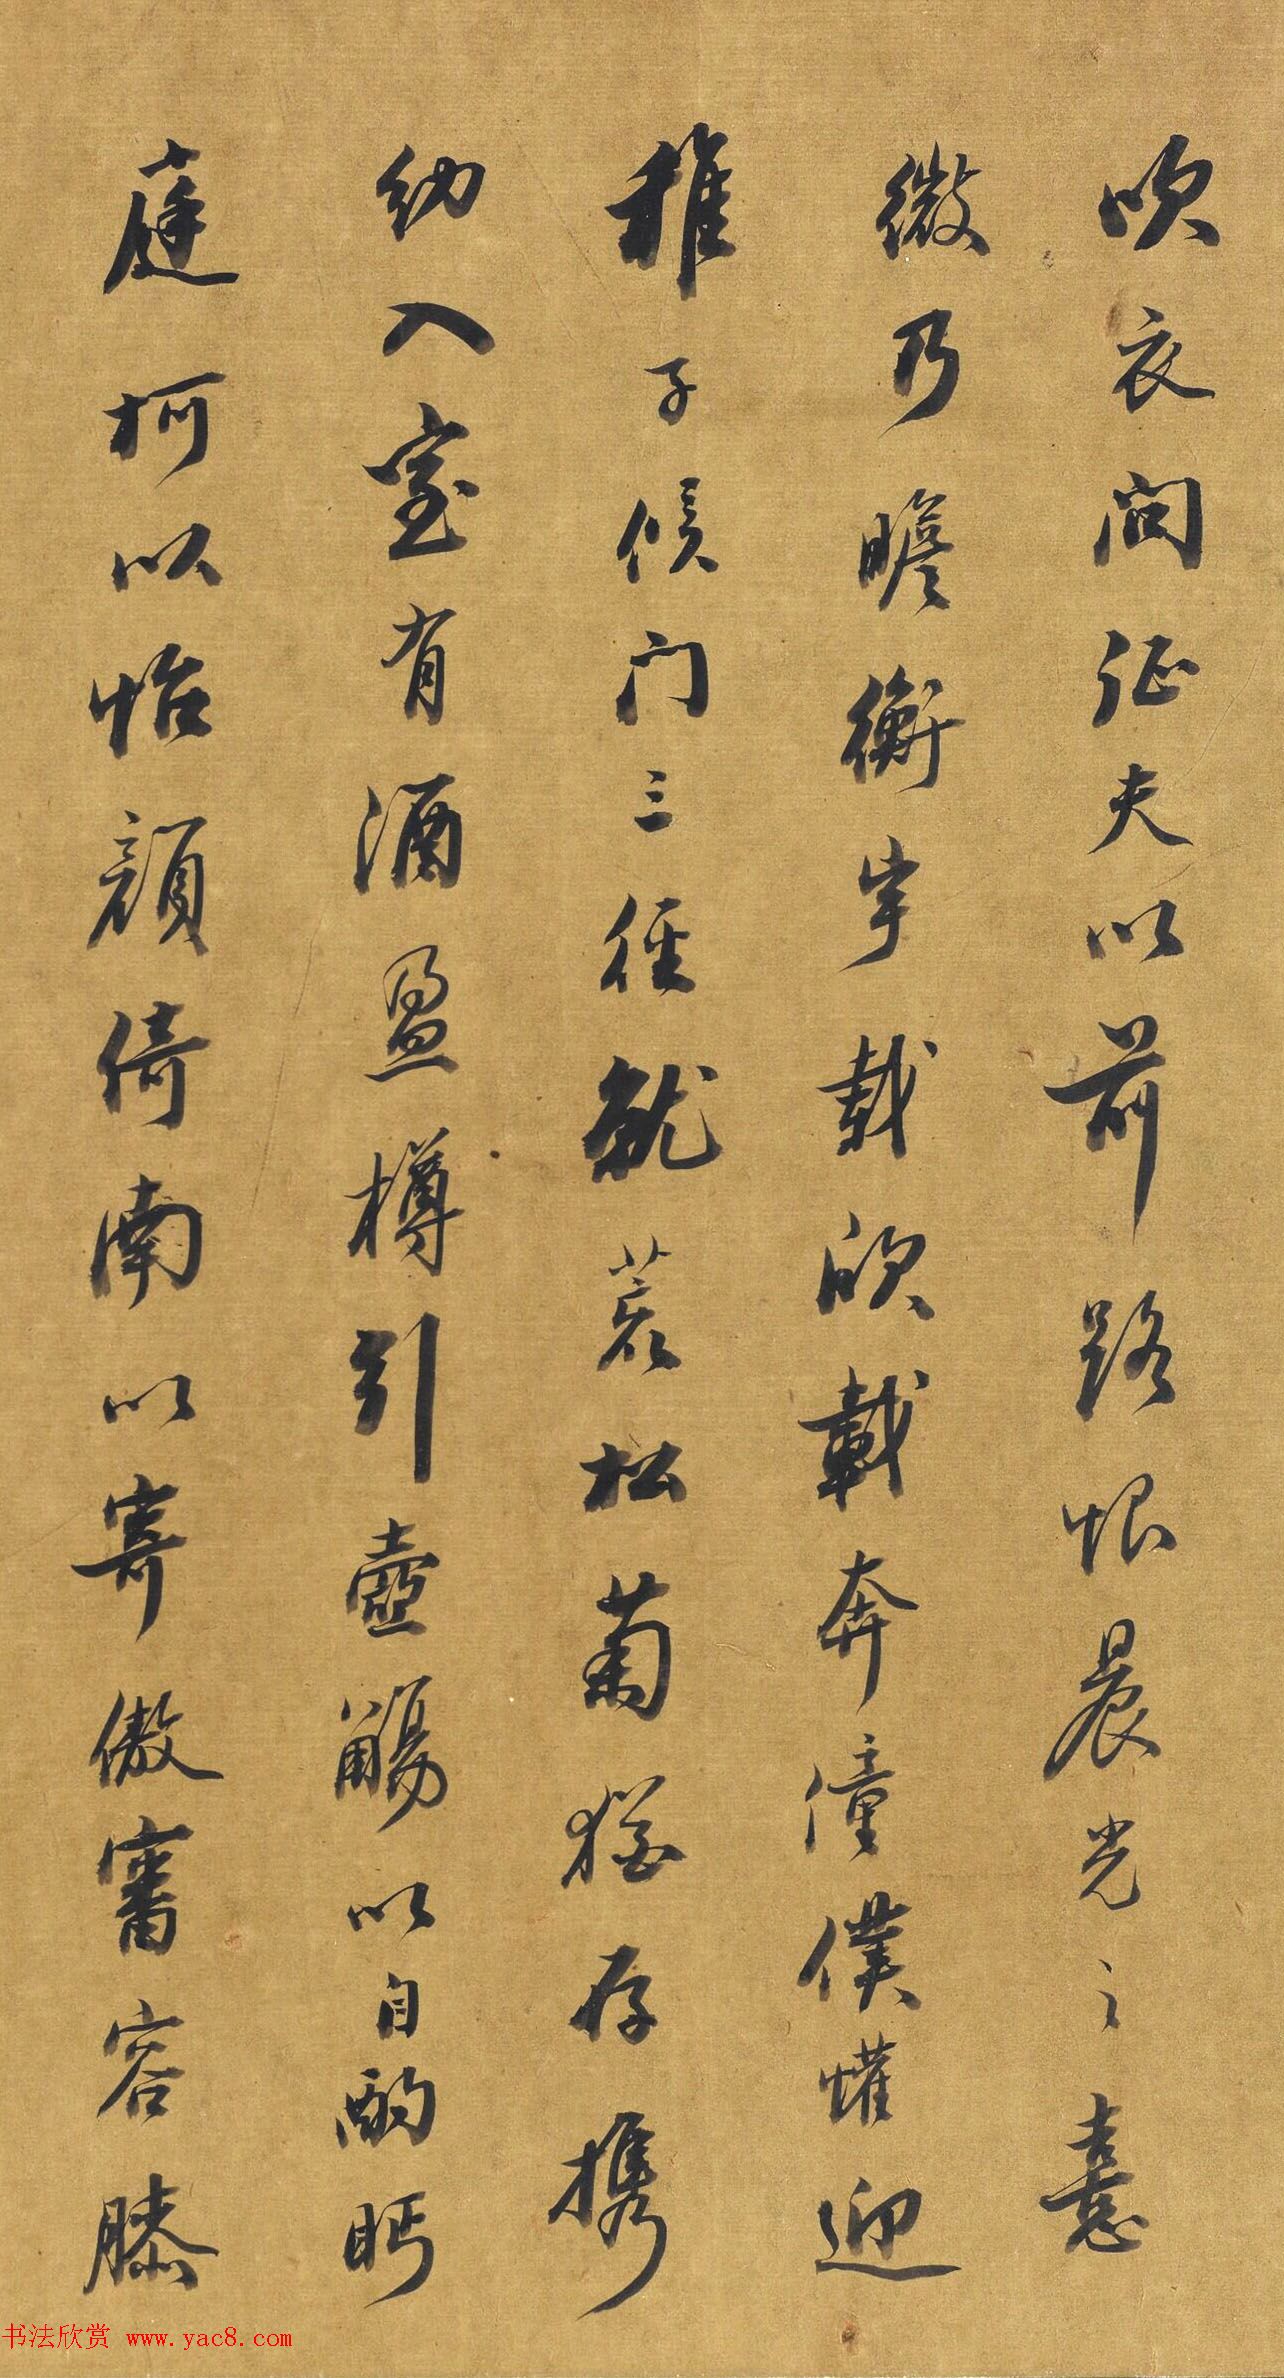 吹衣问征夫以前路恨晨光之熹
微乃瞻衡宇载欣載奔僮僕懽迎
稚子候门三径就荒松菊犹存携
幼入室有酒盈樽引壺觴以自酌眄
庭柯以怡顔倚南以寄傲審容膝
书法欣赏 www.yac8.com